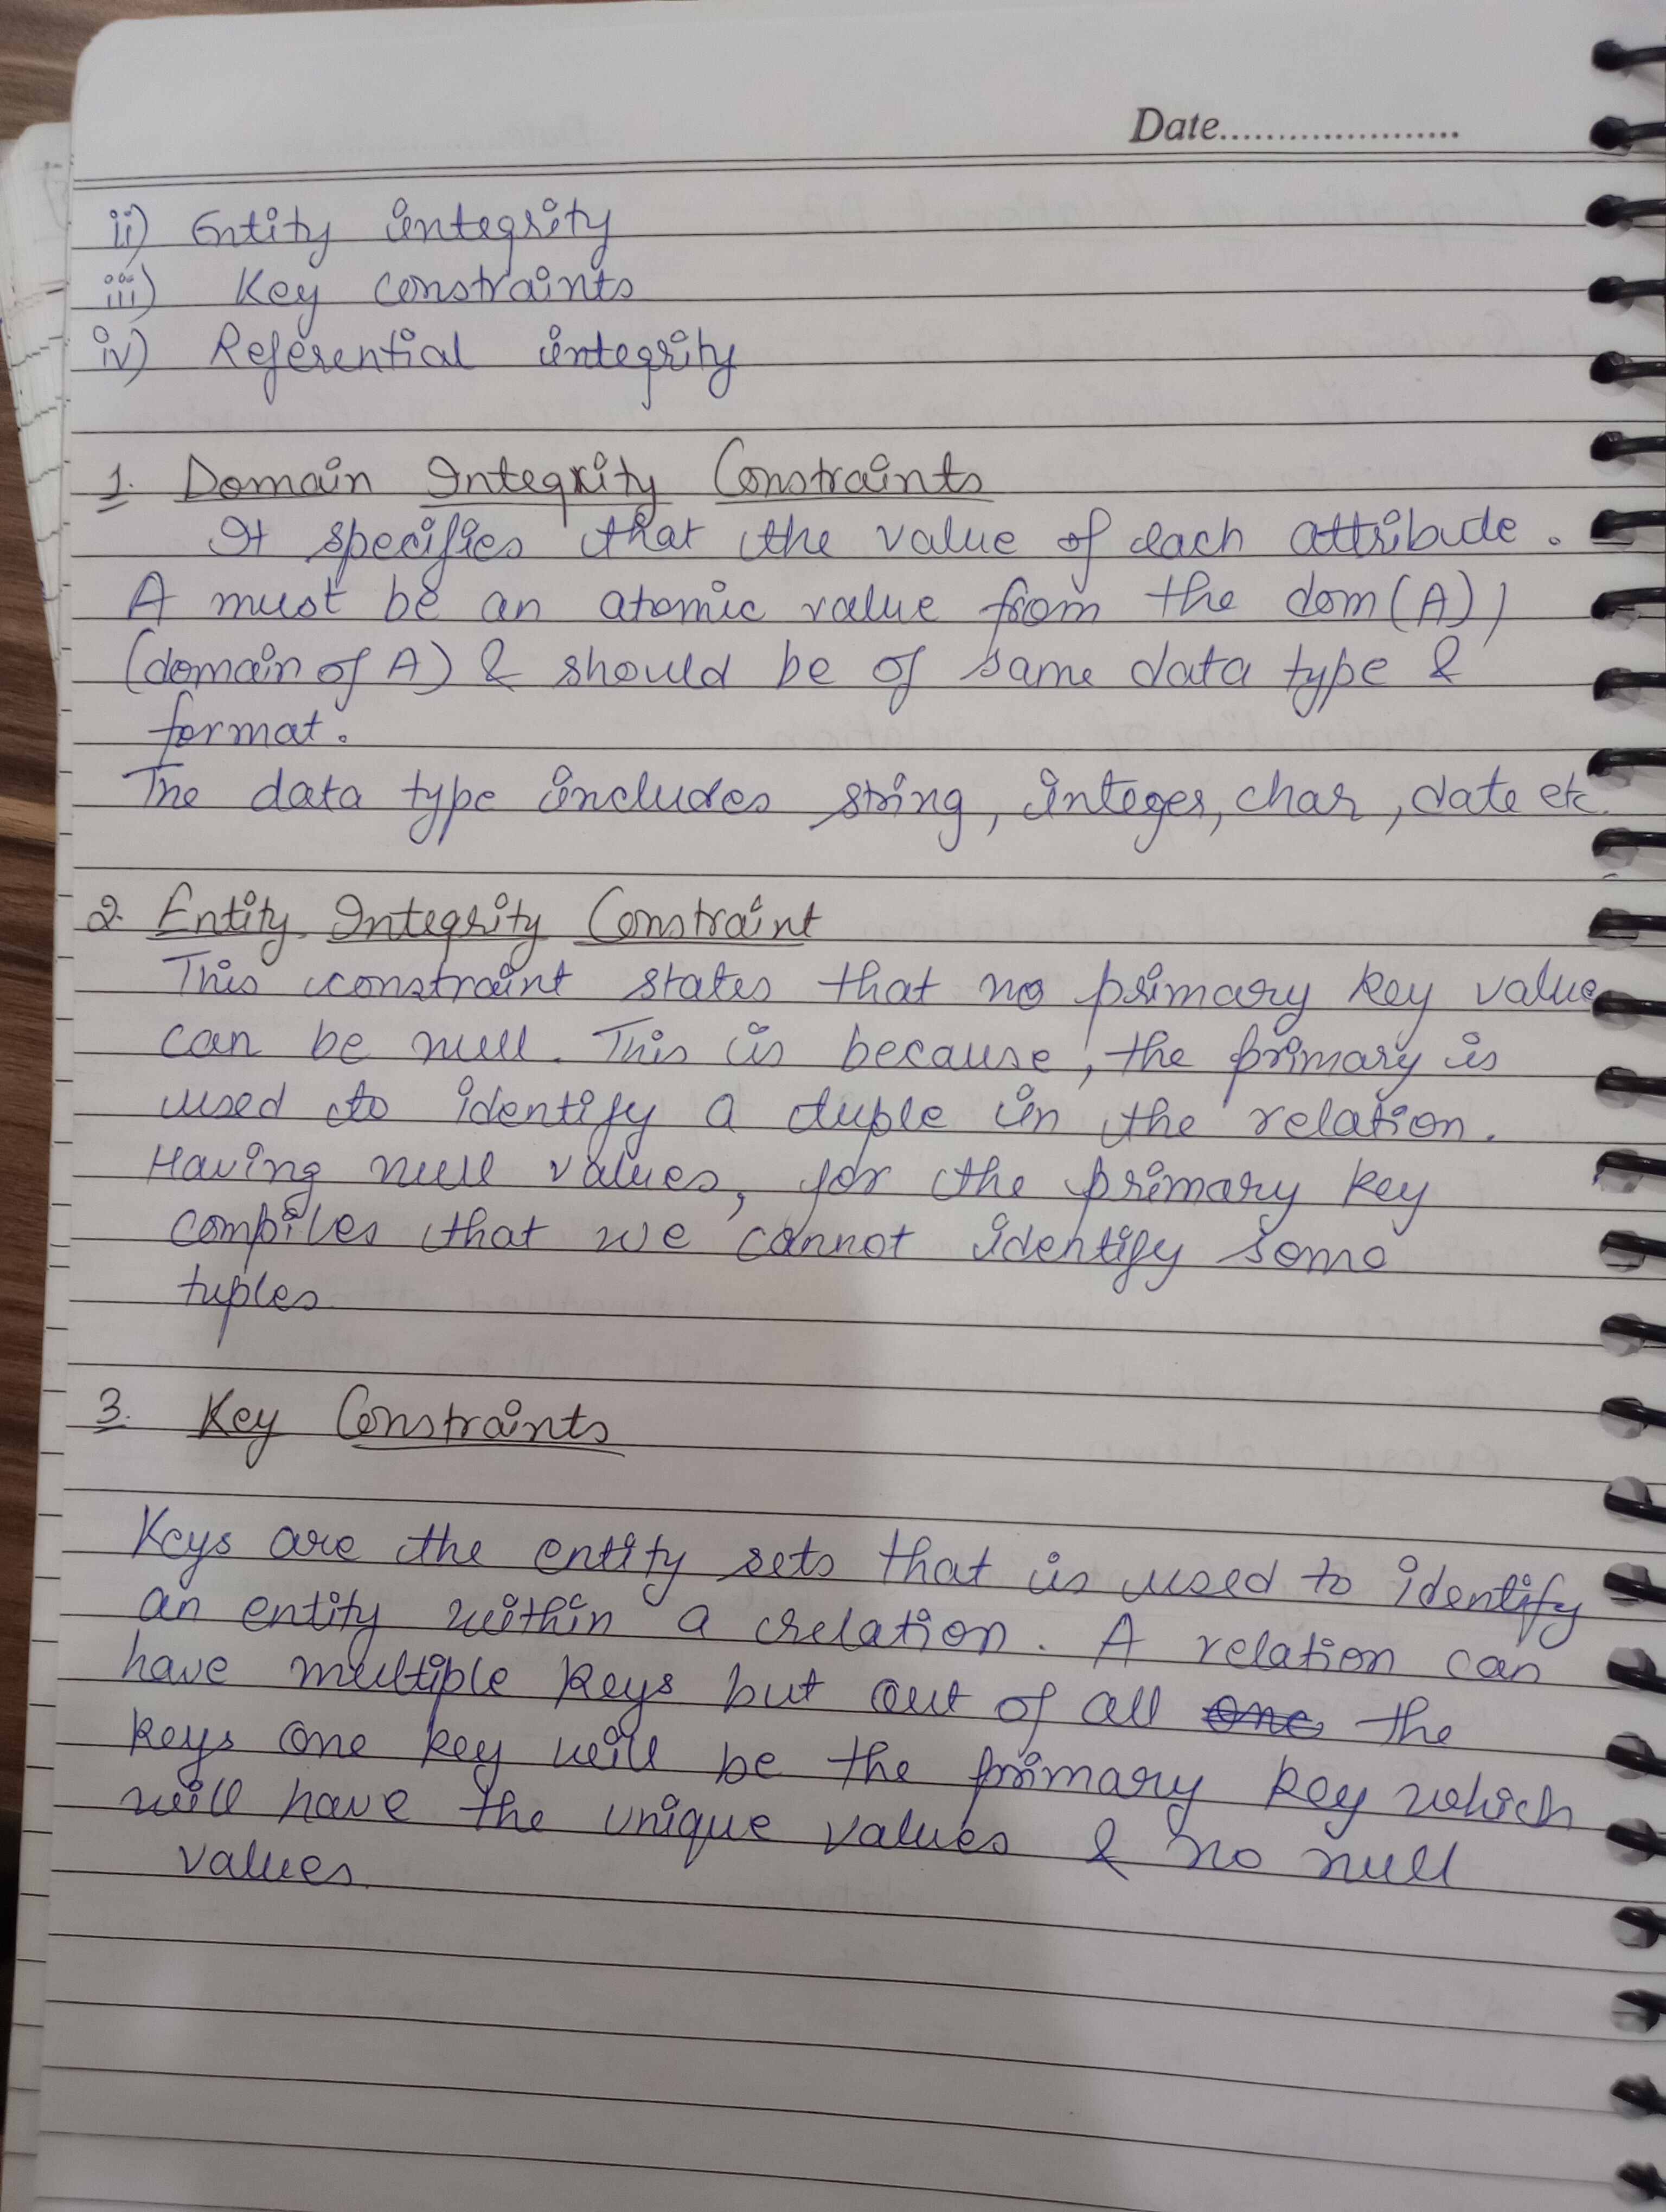 Date.....................
ii) Entity integrity
iii) Key constraints
iv) Referential integrity
1. Domain Integrity Constraints
It specifies that the value of each attribute.
A must be an atomic value from the dom(A))
(domain of A) & should be of same data type &
format.
The data type includes string, integer, char, date etc.
2. Entity Integrity Constraint
This constraint states that no primary key value
can be null. This is because, the primary is
used to identify a tuple in the relation.
Having null values, for the primary key
compiles that we cannot identify some
tuples
3. Key Constraints
Keys are the entity sets that is used to identify
an entity within a relation. A relation can
have multiple keys but out of all one the
keys one key will be the primary key which
will have the unique values & no null
values.